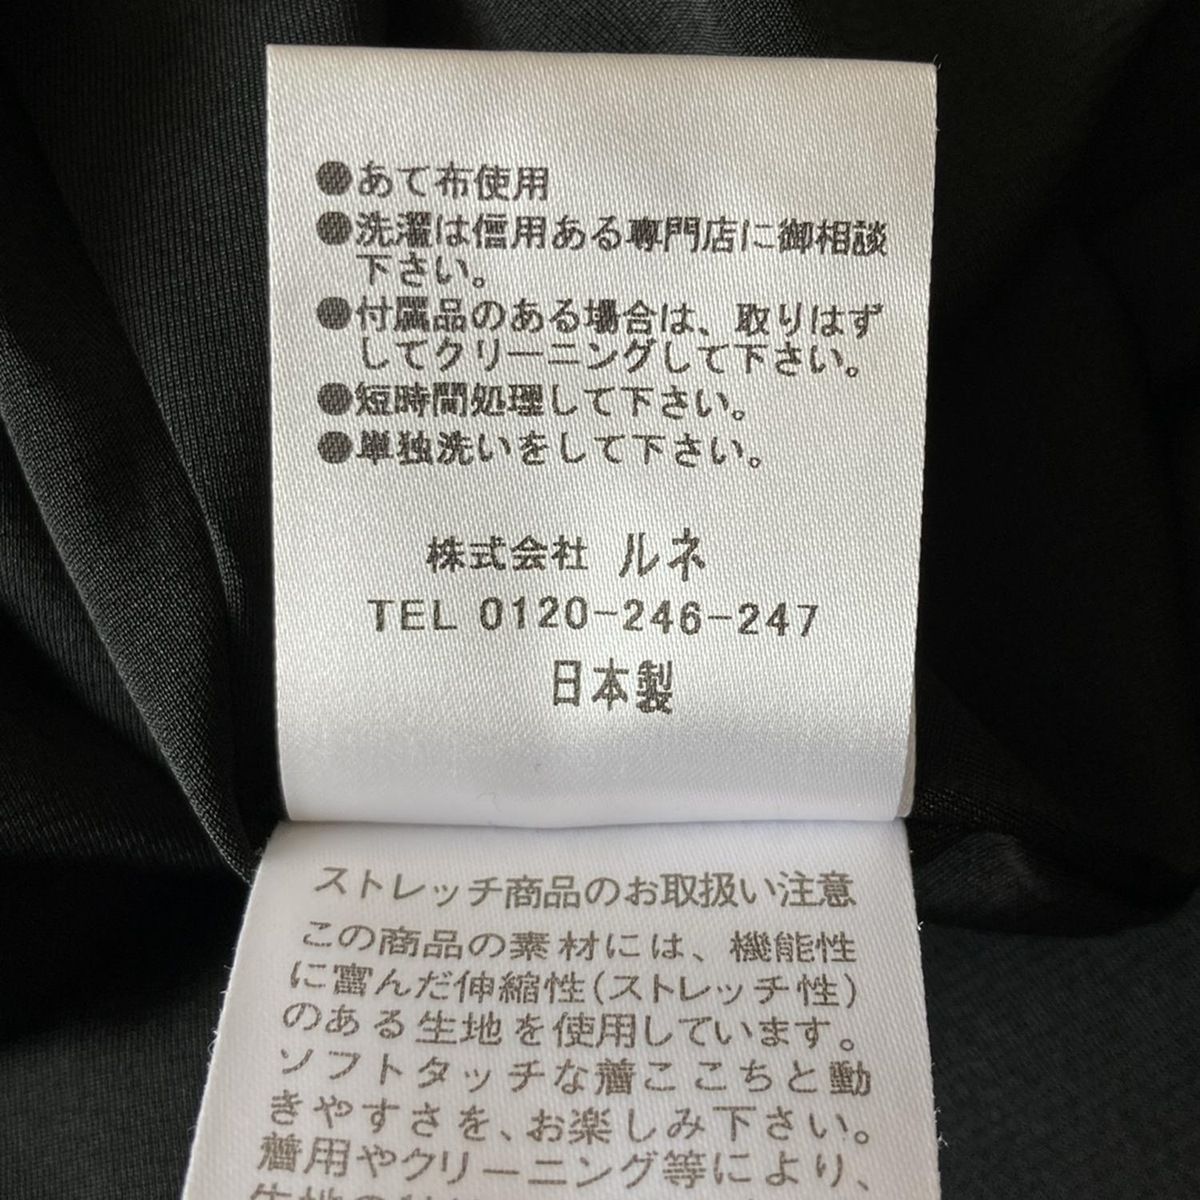 ●あて布使用
●洗濯は信用ある専門店に御相談
下さい。
●付属品のある場合は、取りはず
してクリーニングして下さい。
●短時間処理して下さい。
●単独洗いをして下さい。
株式会社 ルネ
TEL 0120-246-247
日本製
ストレッチ商品のお取扱い注意
この商品の素材には、機能性
に富んだ伸縮性(ストレッチ性)
のある生地を使用しています。
ソフトタッチな着ここちと動
きやすさを、お楽しみ下さい。
着用やクリーニング等により、
生地の